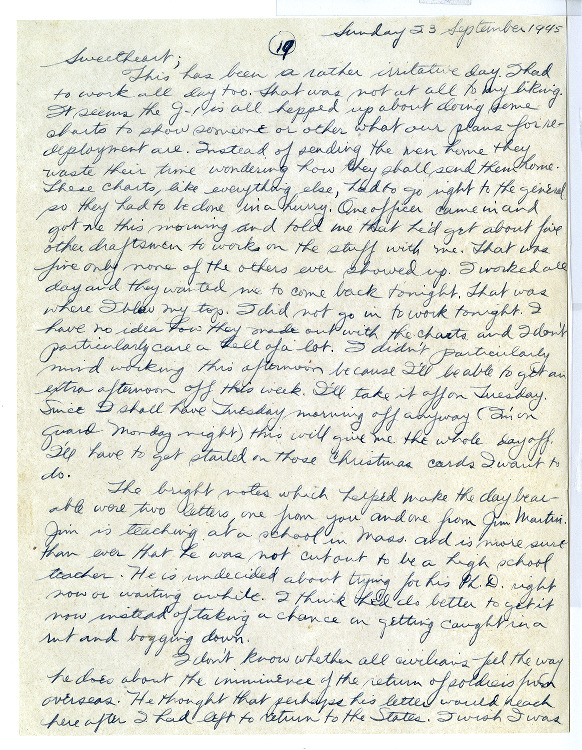 Sunday 23 September 1945
19
Sweetheart;
This has been a rather irritative day. I had
to work all day too. That was not at all to my liking.
It seems the G-1 is all hepped up about doing some
charts to show someone or other what our plans for re-
deployment are. Instead of sending the men home they
waste their time wondering how they shall send them home.
These charts, like everything else, had to go right to the general
so they had to be done in a hurry. One officer came in and
got me this morning and told me that he'd get about five
other draftsmen to work on the stuff with me. That was
fine only none of the others ever showed up. I worked all
day and they wanted me to come back tonight. That was
where I blew my top. I did not go in to work tonight. I
have no idea how they made out with the charts and I don't
particularly care a hell of a lot. I didn't particularly
mind working this afternoon because I'll be able to get an
extra afternoon off this week. I'll take it off on Tuesday.
Since I shall have Tuesday morning off anyway (I'm on
guard Monday night) this will give me the whole day off.
I'll have to get started on those Christmas cards I want to
do.
The bright notes which helped make the day bear-
able were two letters, one from you and one from Jim Martin.
Jim is teaching at a school in Mass. and is more sure
than ever that he was not cut out to be a high school
teacher. He is undecided about trying for his Ph.D. right
now or waiting awhile. I think he'd do better to get it
now instead of taking a chance on getting caught in a
rut and bogging down.
I don't know whether all civilians feel the way
he does about the imminence of the return of soldiers from
overseas. He thought that perhaps his letter would reach
here after I had left to return to the States. I wish I was